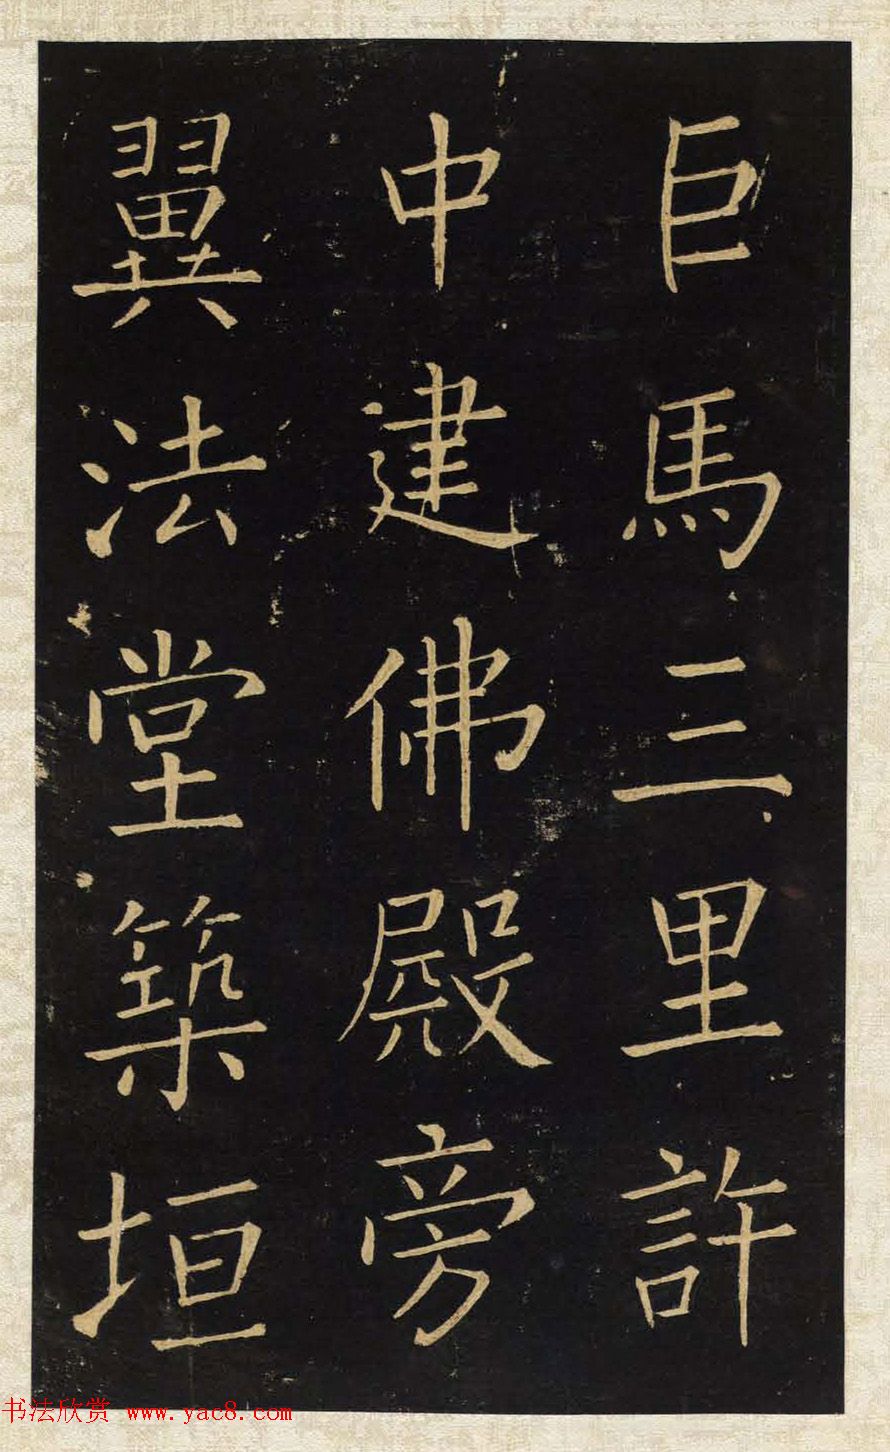 巨馬三里許
中建佛殿旁
翼法堂築垣
书法欣赏 www.yac8.com